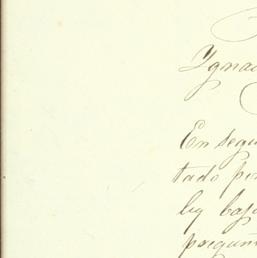 Ygnac
En segu
tado por
ley bajo
pregun